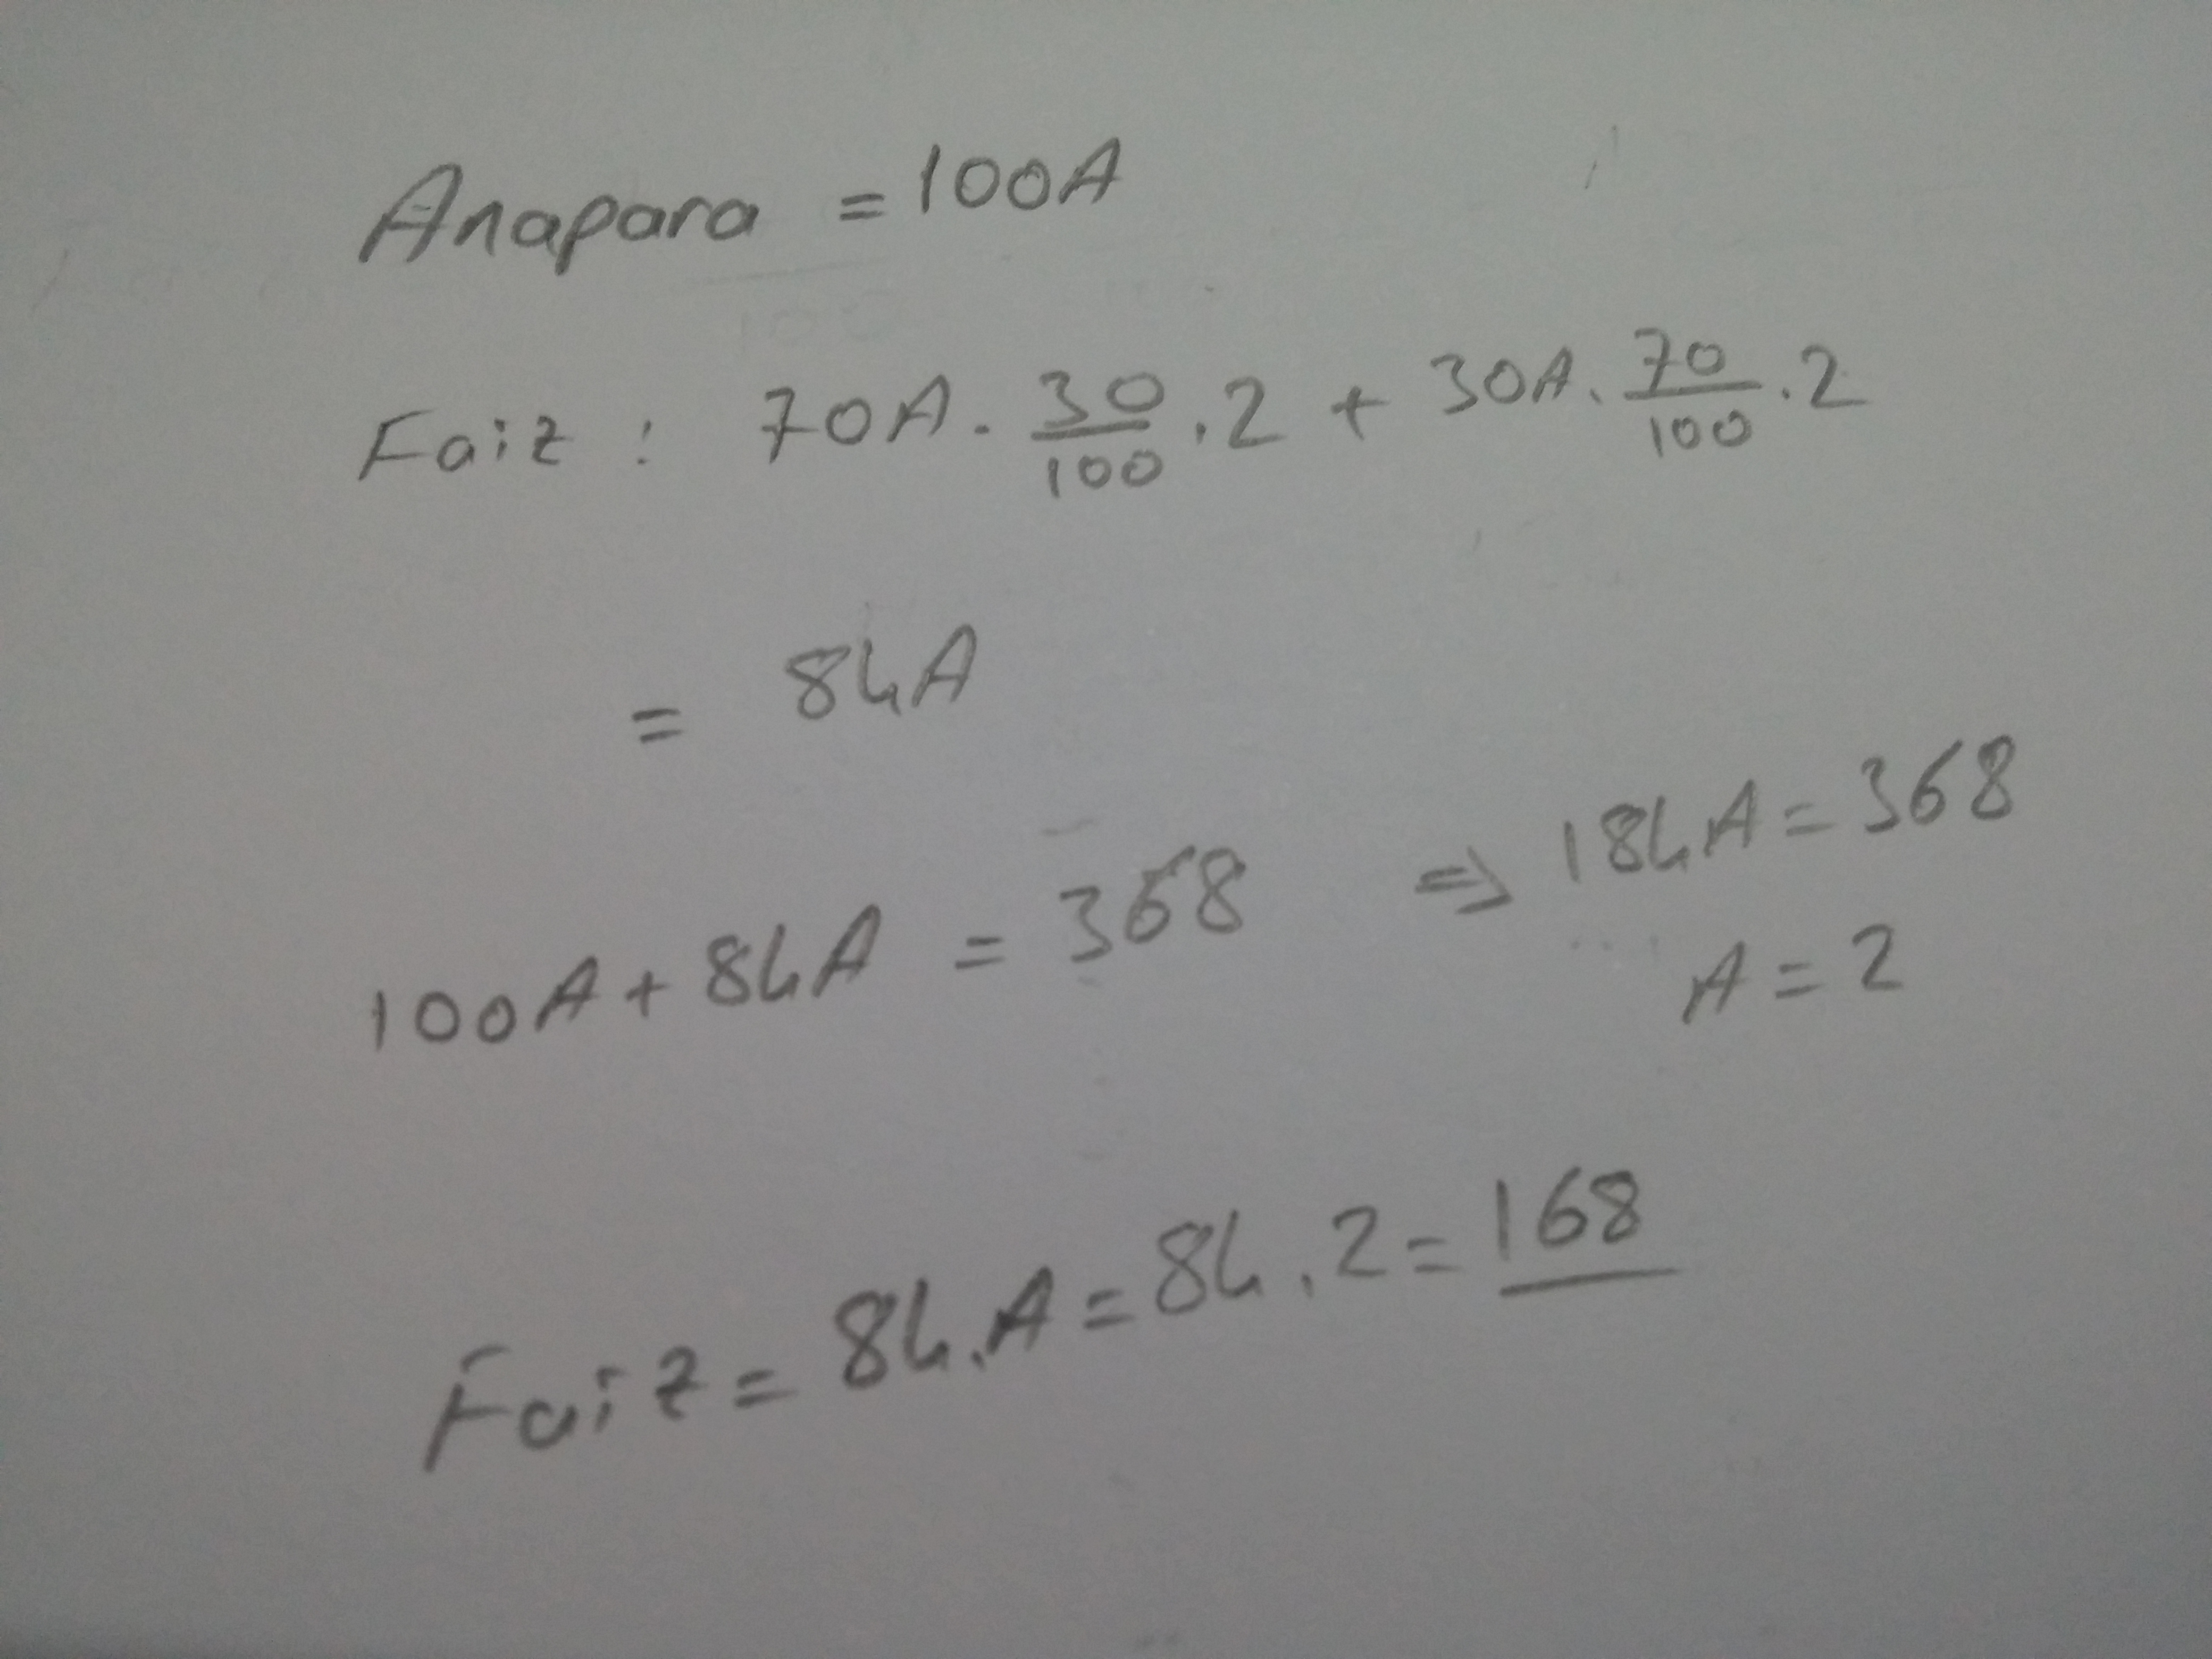 Anapara = 100A
Faiz : 70A . 30/100 . 2 + 30A . 70/100 . 2
= 84A
100A + 84A = 368 ⇒ 184A = 368
A = 2
Faiz = 84.A = 84.2 = 168